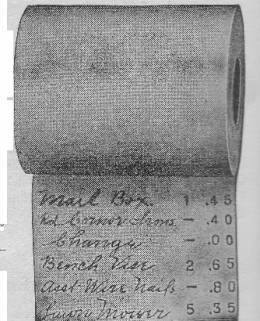 Mail Box 1 .45
Corner Irons — .40
Change — .00
Bench Vise 2 .65
Asst Wire Nails — .80
Lawn Mower 5 .35